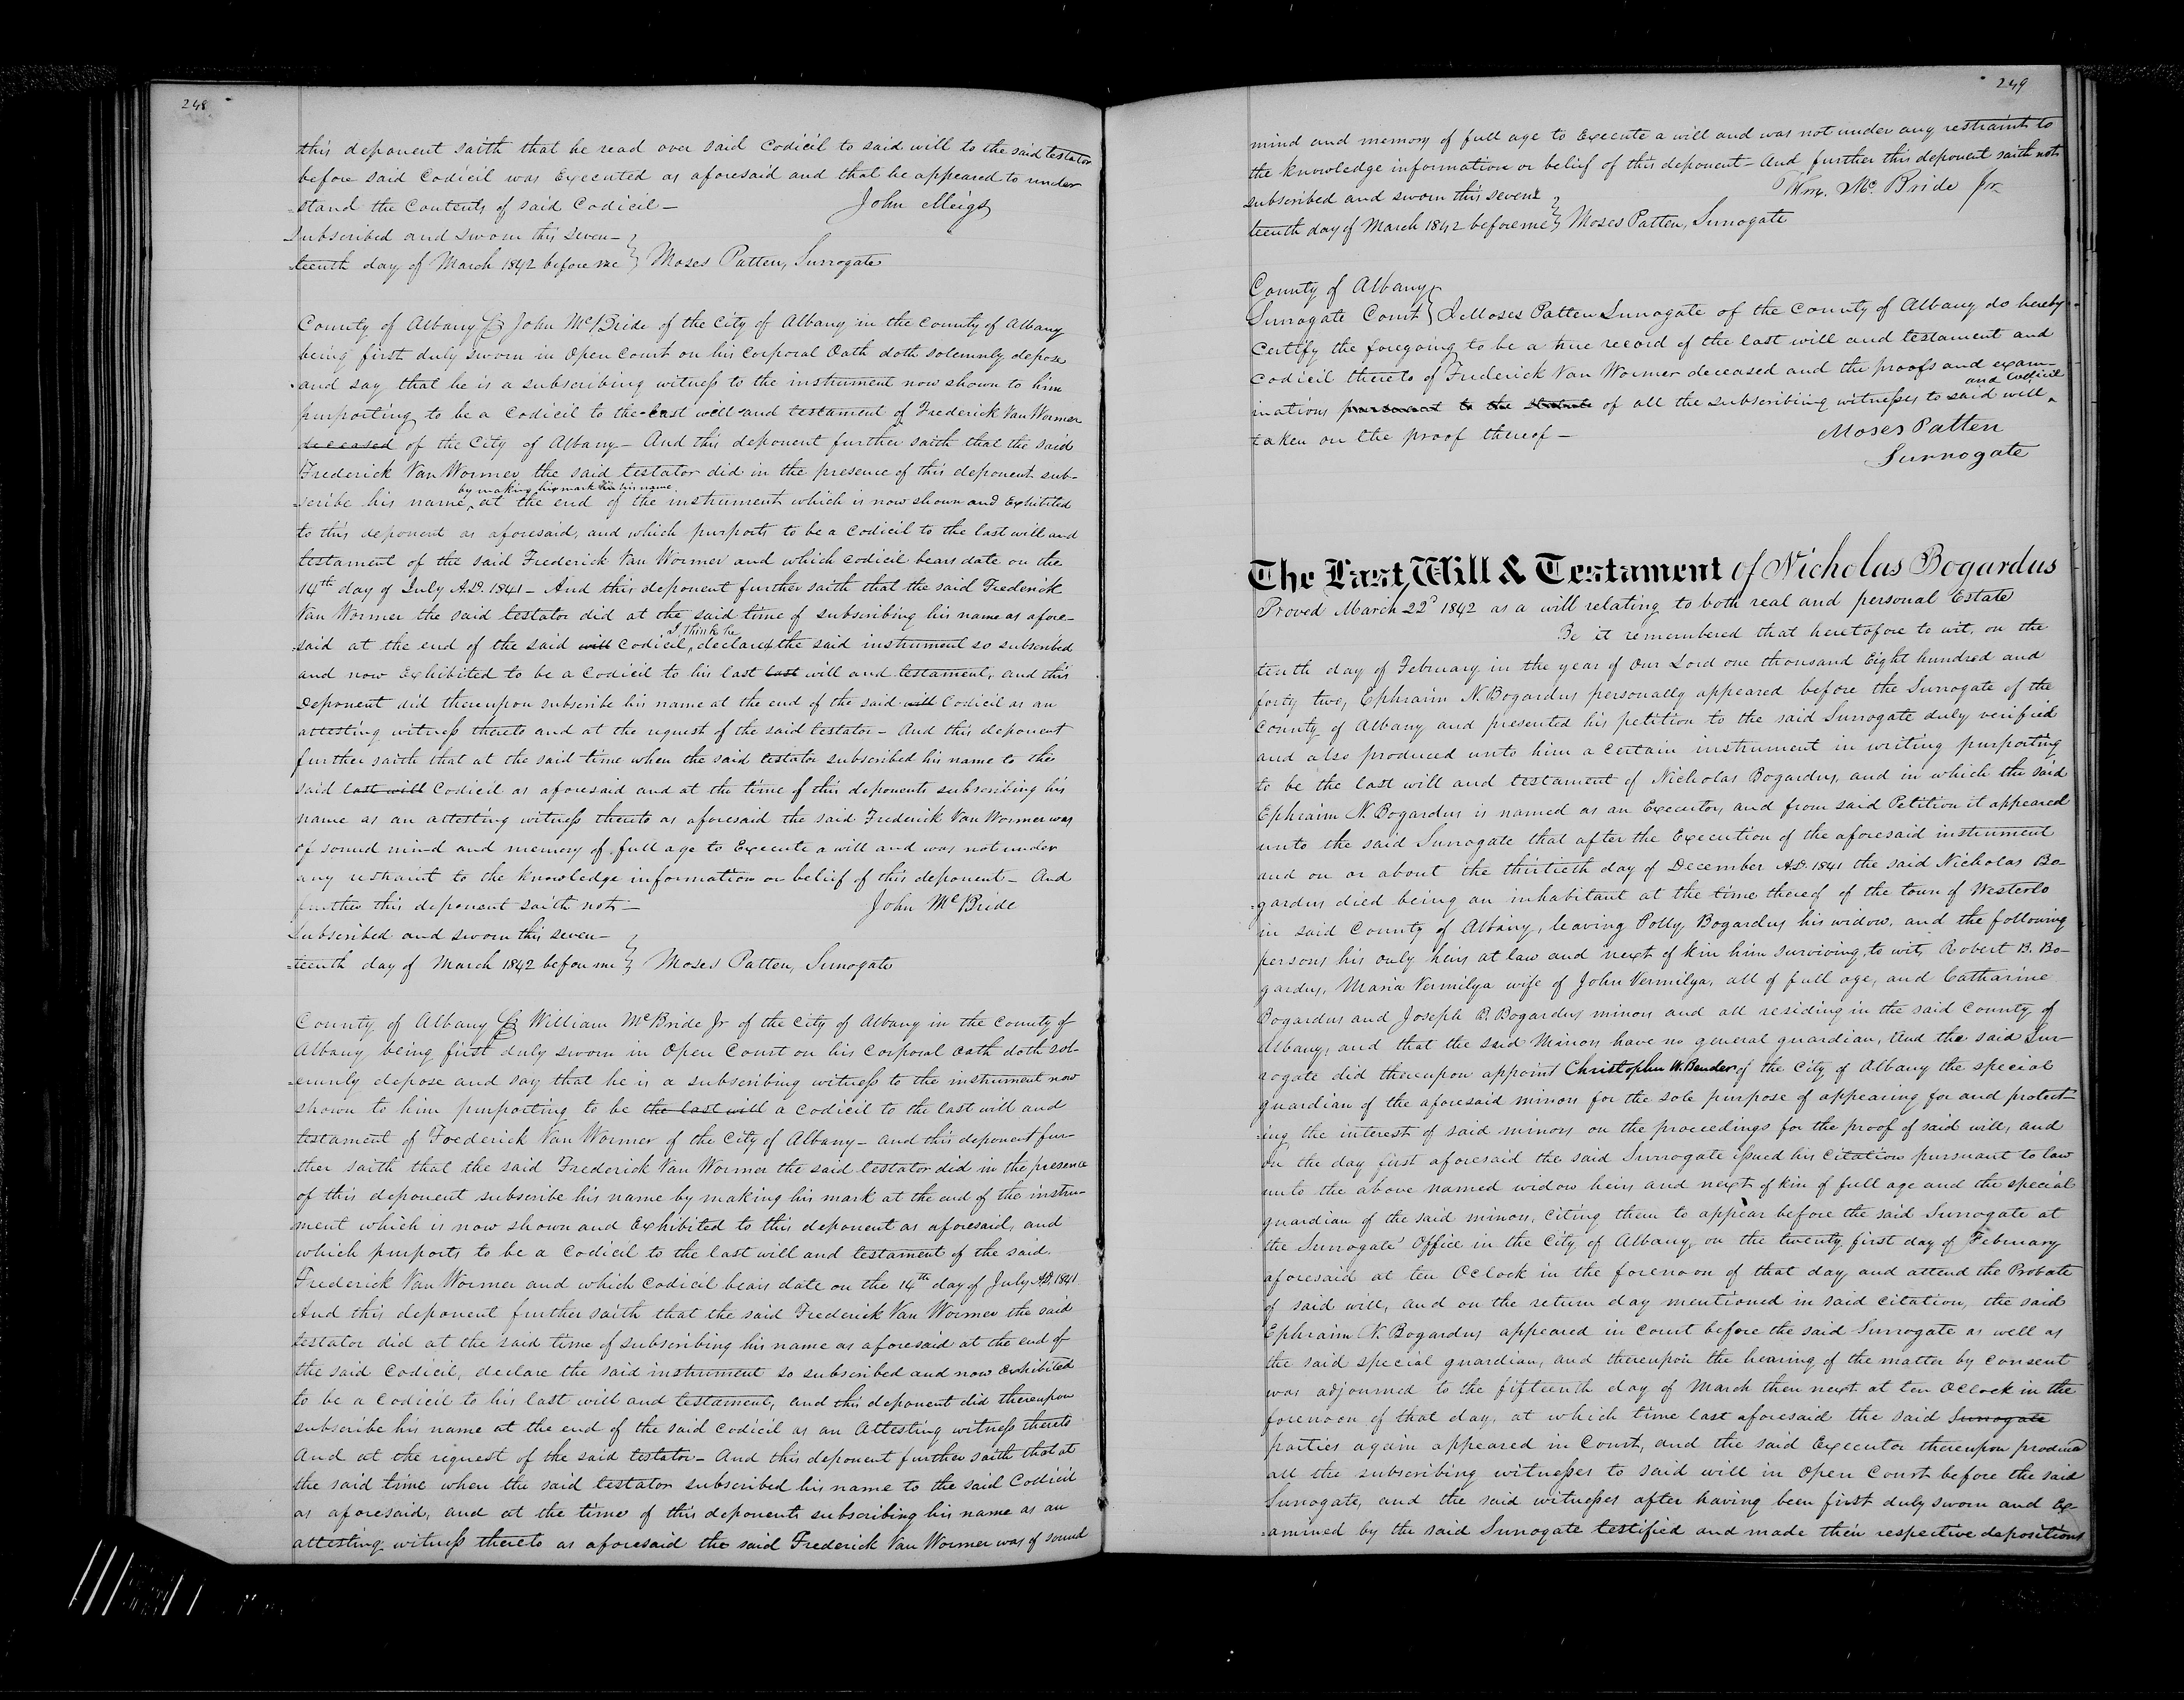 248
this deponent saith that he read over said Codicil to said will to the said testator
before said Codicil was Executed as aforesaid and that he appeared to under
-stand the Contents of said Codicil — John Meigs
Subscribed and sworn this seven-
-teenth day of March 1842 before me } Moses Patten, Surrogate
County of Albany SS John McBride of the City of Albany in the County of Albany
being first duly sworn in Open Court on his Corporal Oath doth solemnly depose
and say that he is a subscribing witness to the instrument now shown to him
purporting to be a Codicil to the last will and testament of Frederick Van Wormer
deceased of the City of Albany — And this deponent further saith that the said
Frederick Van Wormer the said testator did in the presence of this deponent sub-
by making his mark his name
-scribe his name ^ at the end of the instrument which is now shown and Exhibited
to this deponent as aforesaid, and which purports to be a Codicil to the last will and
testament of the said Frederick Van Wormer and which codicil bears date on the
14th day of July A.D. 1841 — And this deponent further saith that the said Frederick
Van Wormer the said testator did at the said time of subscribing his name as afore-
I think he
said at the end of the said will Codicil, ^ declared the said instrument so subscribed
and now Exhibited to be a Codicil to his last last will and testament, and this
Deponent did thereupon subscribe his name at the end of the said will Codicil as an
attesting witness thereto and at the request of the said testator — And this deponent
further saith that at the said time when the said testator subscribed his name to the
said last will Codicil as aforesaid and at the time of this deponents subscribing his
name as an attesting witness thereto as aforesaid the said Frederick Van Wormer was
of sound mind and memory of full age to Execute a will and was not under
any restraint to the knowledge information or belief of this deponent — And
further this deponent saith not — John McBride
Subscribed and sworn this seven-
-teenth day of March 1842 before me } Moses Patten, Surrogate
County of Albany SS William McBride Jr of the City of Albany in the County of
Albany being first duly sworn in Open Court on his Corporal Oath doth sol-
-emnly depose and say that he is a subscribing witness to the instrument now
shown to him purporting to be the last will a codicil to the last will and
testament of Frederick Van Wormer of the City of Albany — and this deponent fur-
ther saith that the said Frederick Van Wormer the said testator did in the presence
of this deponent subscribe his name by making his mark at the end of the instru-
ment which is now shown and Exhibited to this deponent as aforesaid, and
which purports to be a Codicil to the last will and testament of the said
Frederick Van Wormer and which codicil bears date on the 14th day of July A.D. 1841
And this deponent further saith that the said Frederick Van Wormer the said
testator did at the said time of subscribing his name as aforesaid at the end of
the said Codicil, declare the said instrument so subscribed and now exhibited
to be a Codicil to his last will and testament, and this deponent did thereupon
subscribe his name at the end of the said Codicil as an Attesting witness thereto
And at the request of the said testator — And this deponent further saith that at
the said time when the said testator subscribed his name to the said Codicil
as aforesaid, and at the time of this deponents subscribing his name as an
attesting witness thereto as aforesaid the said Frederick Van Wormer was of sound
249
mind and memory of full age to Execute a will and was not under any restraint to
the knowledge information or belief of this deponent — And further this deponent saith not
Wm. McBride Jr
subscribed and sworn this seven-
teenth day of March 1842 before me } Moses Patten, Surrogate
County of Albany
Surrogate Court } I Moses Patten Surrogate of the County of Albany do hereby
Certify the foregoing to be a true record of the last will and testament and
codicil thereto of Frederick Van Wormer deceased and the proofs and exam-
and codicil
inations pursuant to the statute of all the subscribing witnesses to said will ^
taken on the proof thereof — Moses Patten
Surrogate
The Last Will & Testament of Nicholas Bogardus
Proved March 22d 1842 as a will relating to both real and personal Estate
Be it remembered that heretofore to wit, on the
tenth day of February in the year of Our Lord one thousand Eight hundred and
forty two, Ephraim N. Bogardus personally appeared before the Surrogate of the
County of Albany and presented his petition to the said Surrogate duly verified
and also produced unto him a certain instrument in writing purporting
to be the last will and testament of Nicholas Bogardus, and in which the said
Ephraim N. Bogardus is named as an Executor, and from said Petition it appeared
unto the said Surrogate that after the Execution of the aforesaid instrument
and on or about the thirtieth day of December A.D. 1841 the said Nicholas Bo-
-gardus died being an inhabitant at the time thereof of the town of Westerlo
in said County of Albany, leaving Polly Bogardus his widow, and the following
persons his only heirs at law and next of kin him surviving, to wit, Robert B. Bo-
gardus, Maria Vermilya wife of John Vermilya, all of full age, and Catharine
Bogardus and Joseph B. Bogardus minors and all residing in the said County of
Albany, and that the said Minors have no general guardian, And the said Sur-
rogate did thereupon appoint Christopher W. Bender of the City of Albany the special
guardian of the aforesaid minors for the sole purpose of appearing for and protect-
-ing the interest of said minors on the proceedings for the proof of said will, and
on the day first aforesaid the said Surrogate issued his citation pursuant to law
unto the above named widow heirs and next of kin of full age and the special
guardian of the said minors, citing them to appear before the said Surrogate at
the Surrogate' Office in the City of Albany, on the twenty first day of February
aforesaid at ten Oclock in the forenoon of that day and attend the Probate
of said will, and on the return day mentioned in said citation, the said
Ephraim N. Bogardus appeared in Court before the said Surrogate as well as
the said special guardian, and thereupon the hearing of the matter by consent
was adjourned to the fifteenth day of March then next at ten Oclock in the
forenoon of that day, at which time last aforesaid the said Surrogate
parties again appeared in Court, and the said Executor thereupon produced
all the subscribing witnesses to said will in Open Court before the said
Surrogate, and the said witnesses after having been first duly sworn and Ex-
-amined by the said Surrogate testified and made their respective depositions